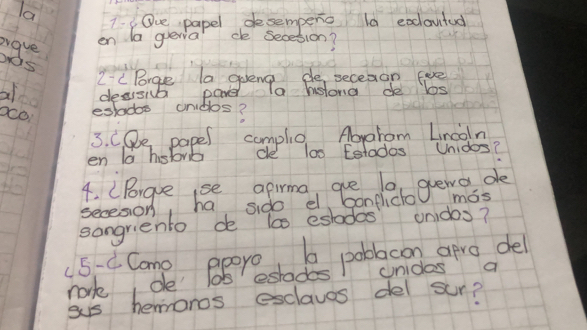 la
orque
al
oco
1-¿Que papel desempeño la esclavitud
en la guerra de Secesion?
2-¿Porque la guerra de secesion fue
desisiva para la historia de los
estados unidos?
3.¿Que papel cumplio Abraham Lincoln
en la historia de los Estados Unidos?
4. ¿Porque se afirma que la guerra de
secesion ha sido el conflicto más
sangriento de los estados unidos?
¿5-¿Como apoyo la poblacon afro del
norte de los estados unidos a
sus hermanos esclavos del sur?